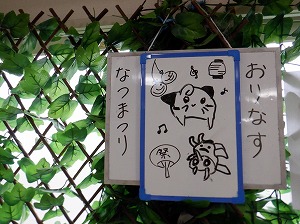 おりなす
なつまつり
祭